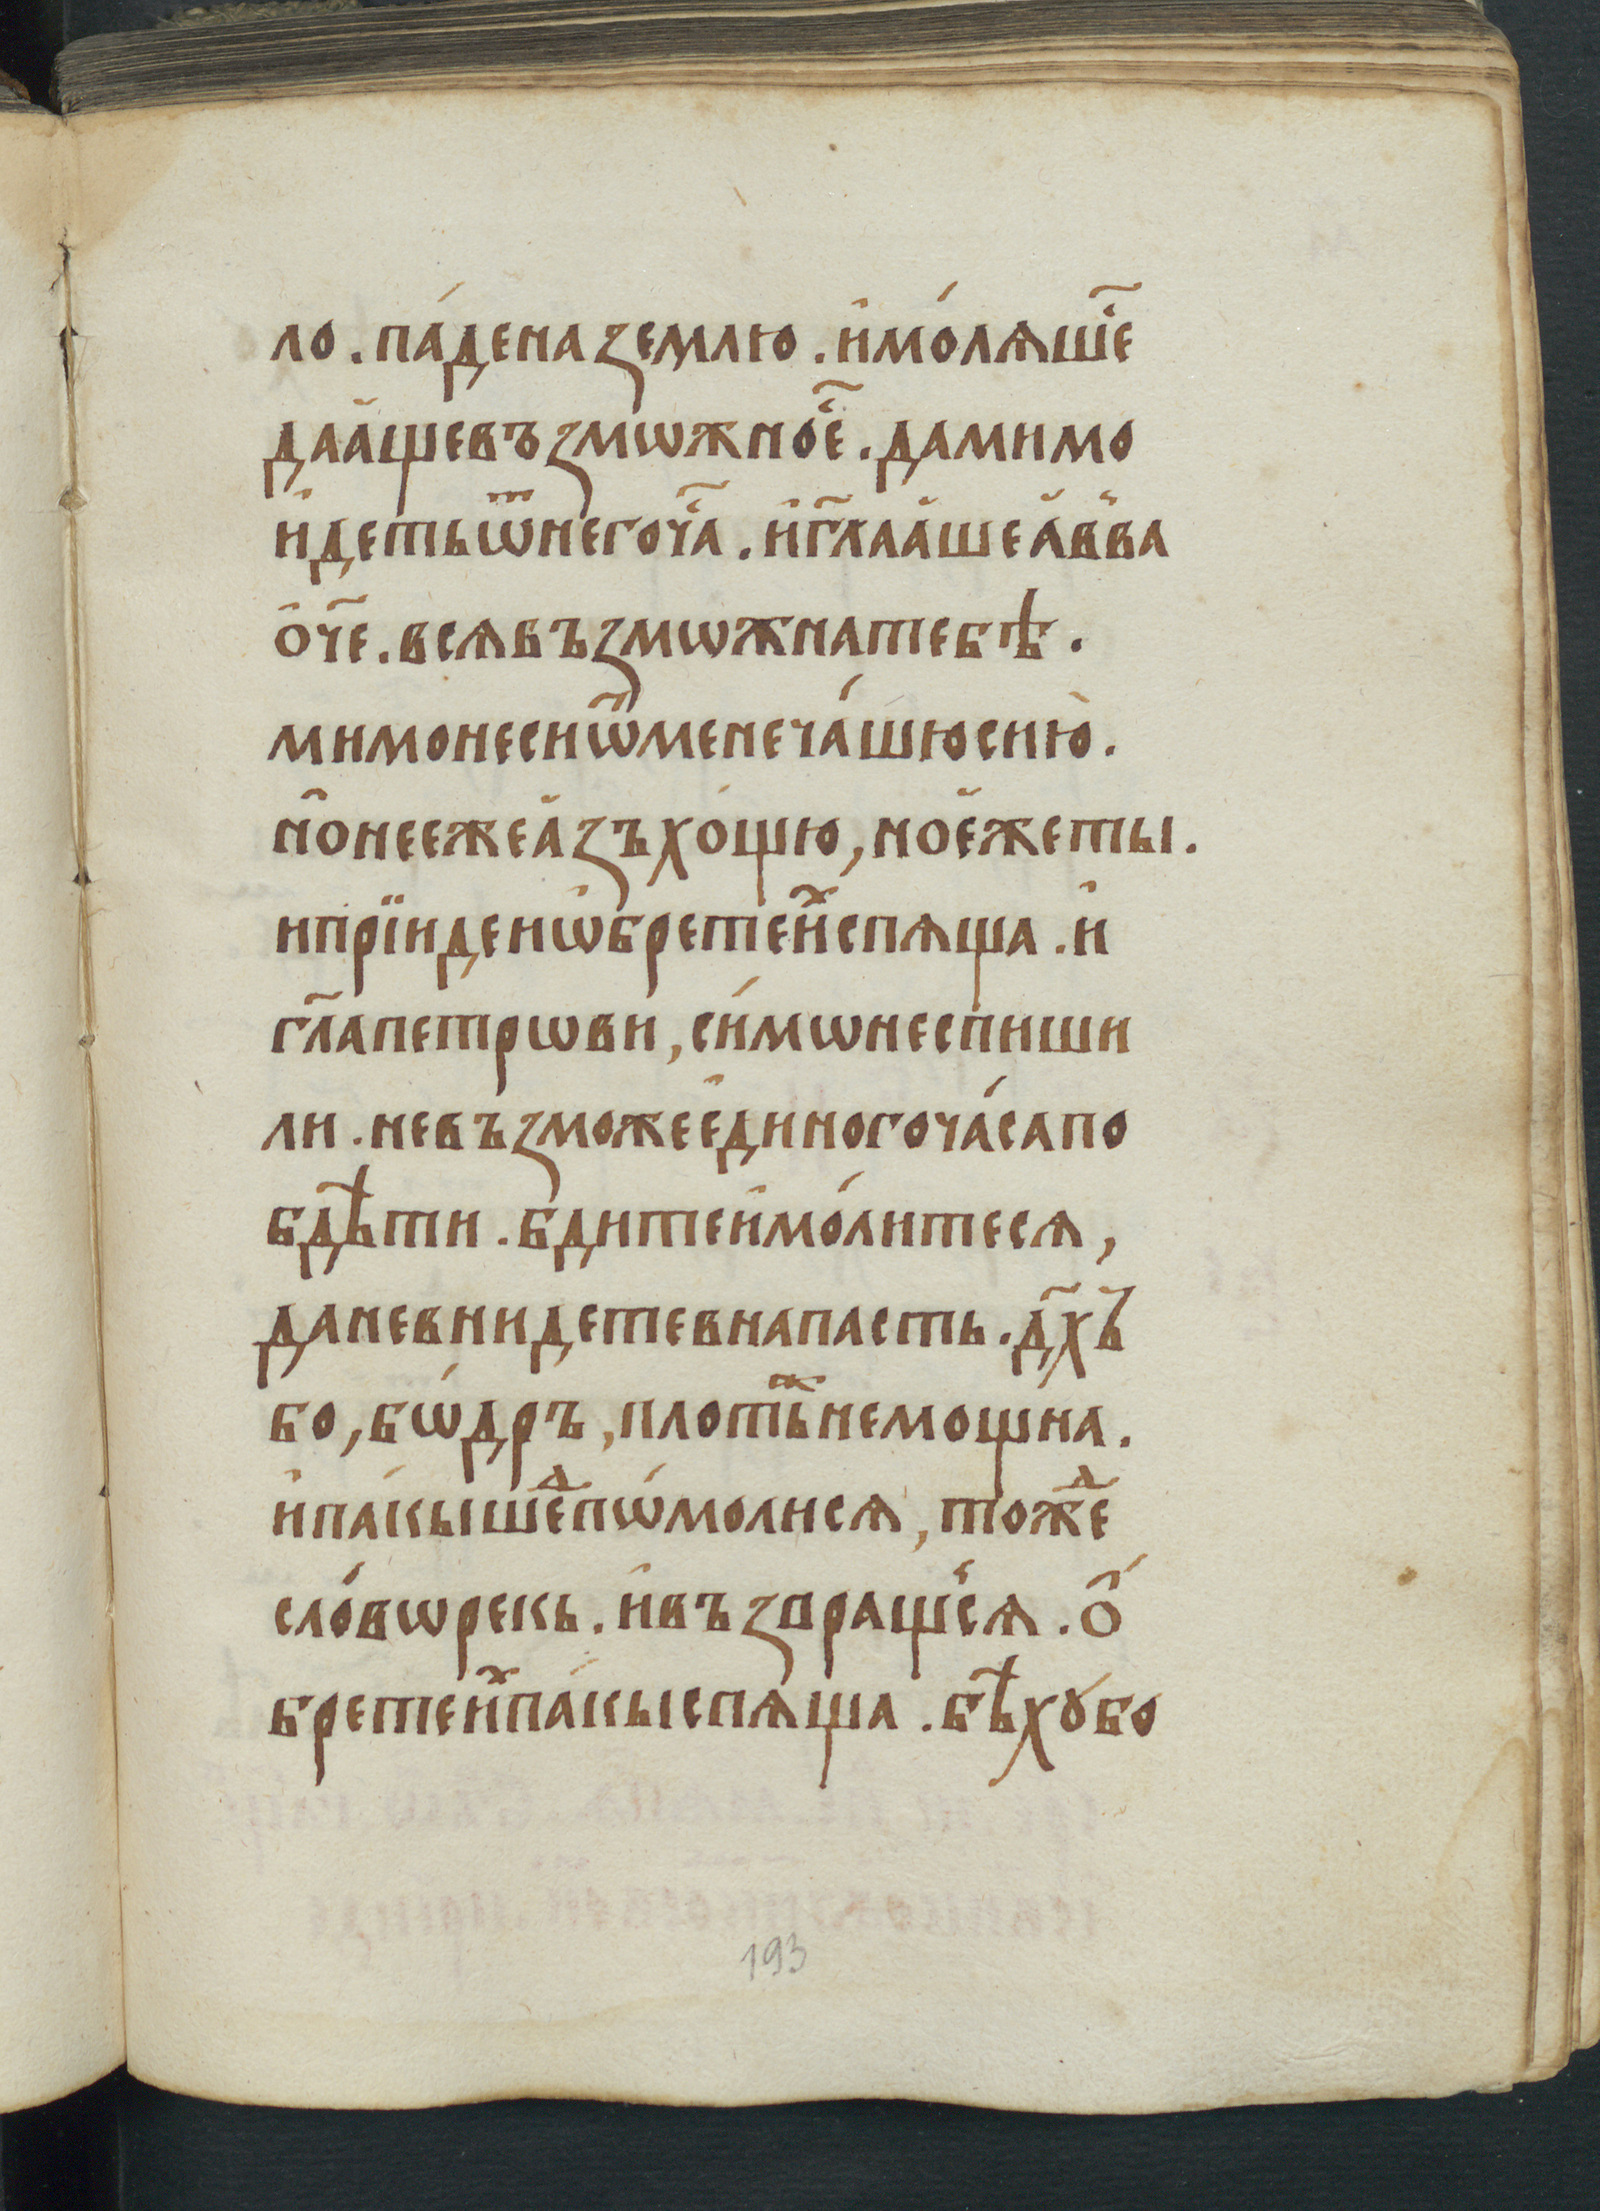 ло. па́денаꙁемлю. и҆мо́лѧше҃
даа҆щевъꙁмѡжное҃. дамимо
и҆детьѿнегоча҃. и҆гл҃аа҆шеа҆в̾ва
о҆ч҃е. всѧвъꙁмѡжнатебѣ.
мимонесиѿменеча́шюсию̀.
но҆неежеа҆ꙁъхо́щю, ное҆жеты.
ипрїидеиѡ҆бретеи҆ⷯспѧща. и҆
гл҃апетрѡви, си́мѡнеспиши
ли. невъꙁможее҆диногоча́сапо
бдѣти. бдитеи҆мо́литесѧ,
даневнидетевнапасть. дх҃ъ
бо, бѡ́дръ, плотьⷤнемощна̀.
и҆па́кышеⷣпѡ́молисѧ, тожеⷣ
сло́вѡрекь. и҆въꙁвраще҆сѧ. ѻ҆
бретеи҆ⷯпа́кыспѧща. бѣхꙋбо
193